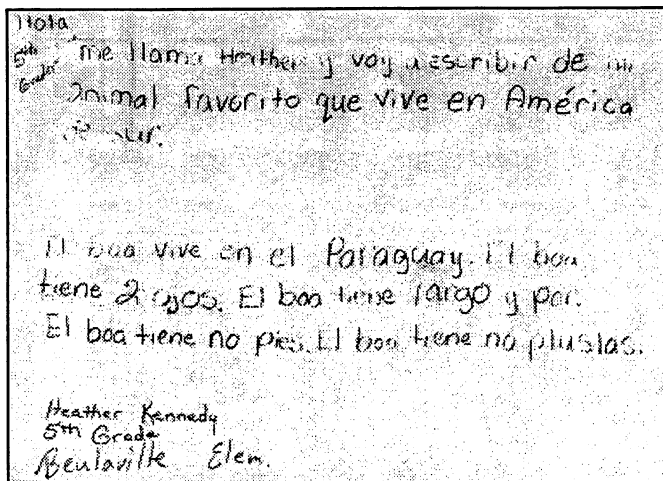 Hola,
5th Grade
me llamo Heather y voy a escribir de mi
animal favorito que vive en América
sur.
El boa vive en el Paraguay. El boa
tiene 2 ojos. El boa tiene largo y
El boa tiene no pies. El boa tiene no pluslas.
Heather Kennedy
5th Grade
Beulaville Elem.